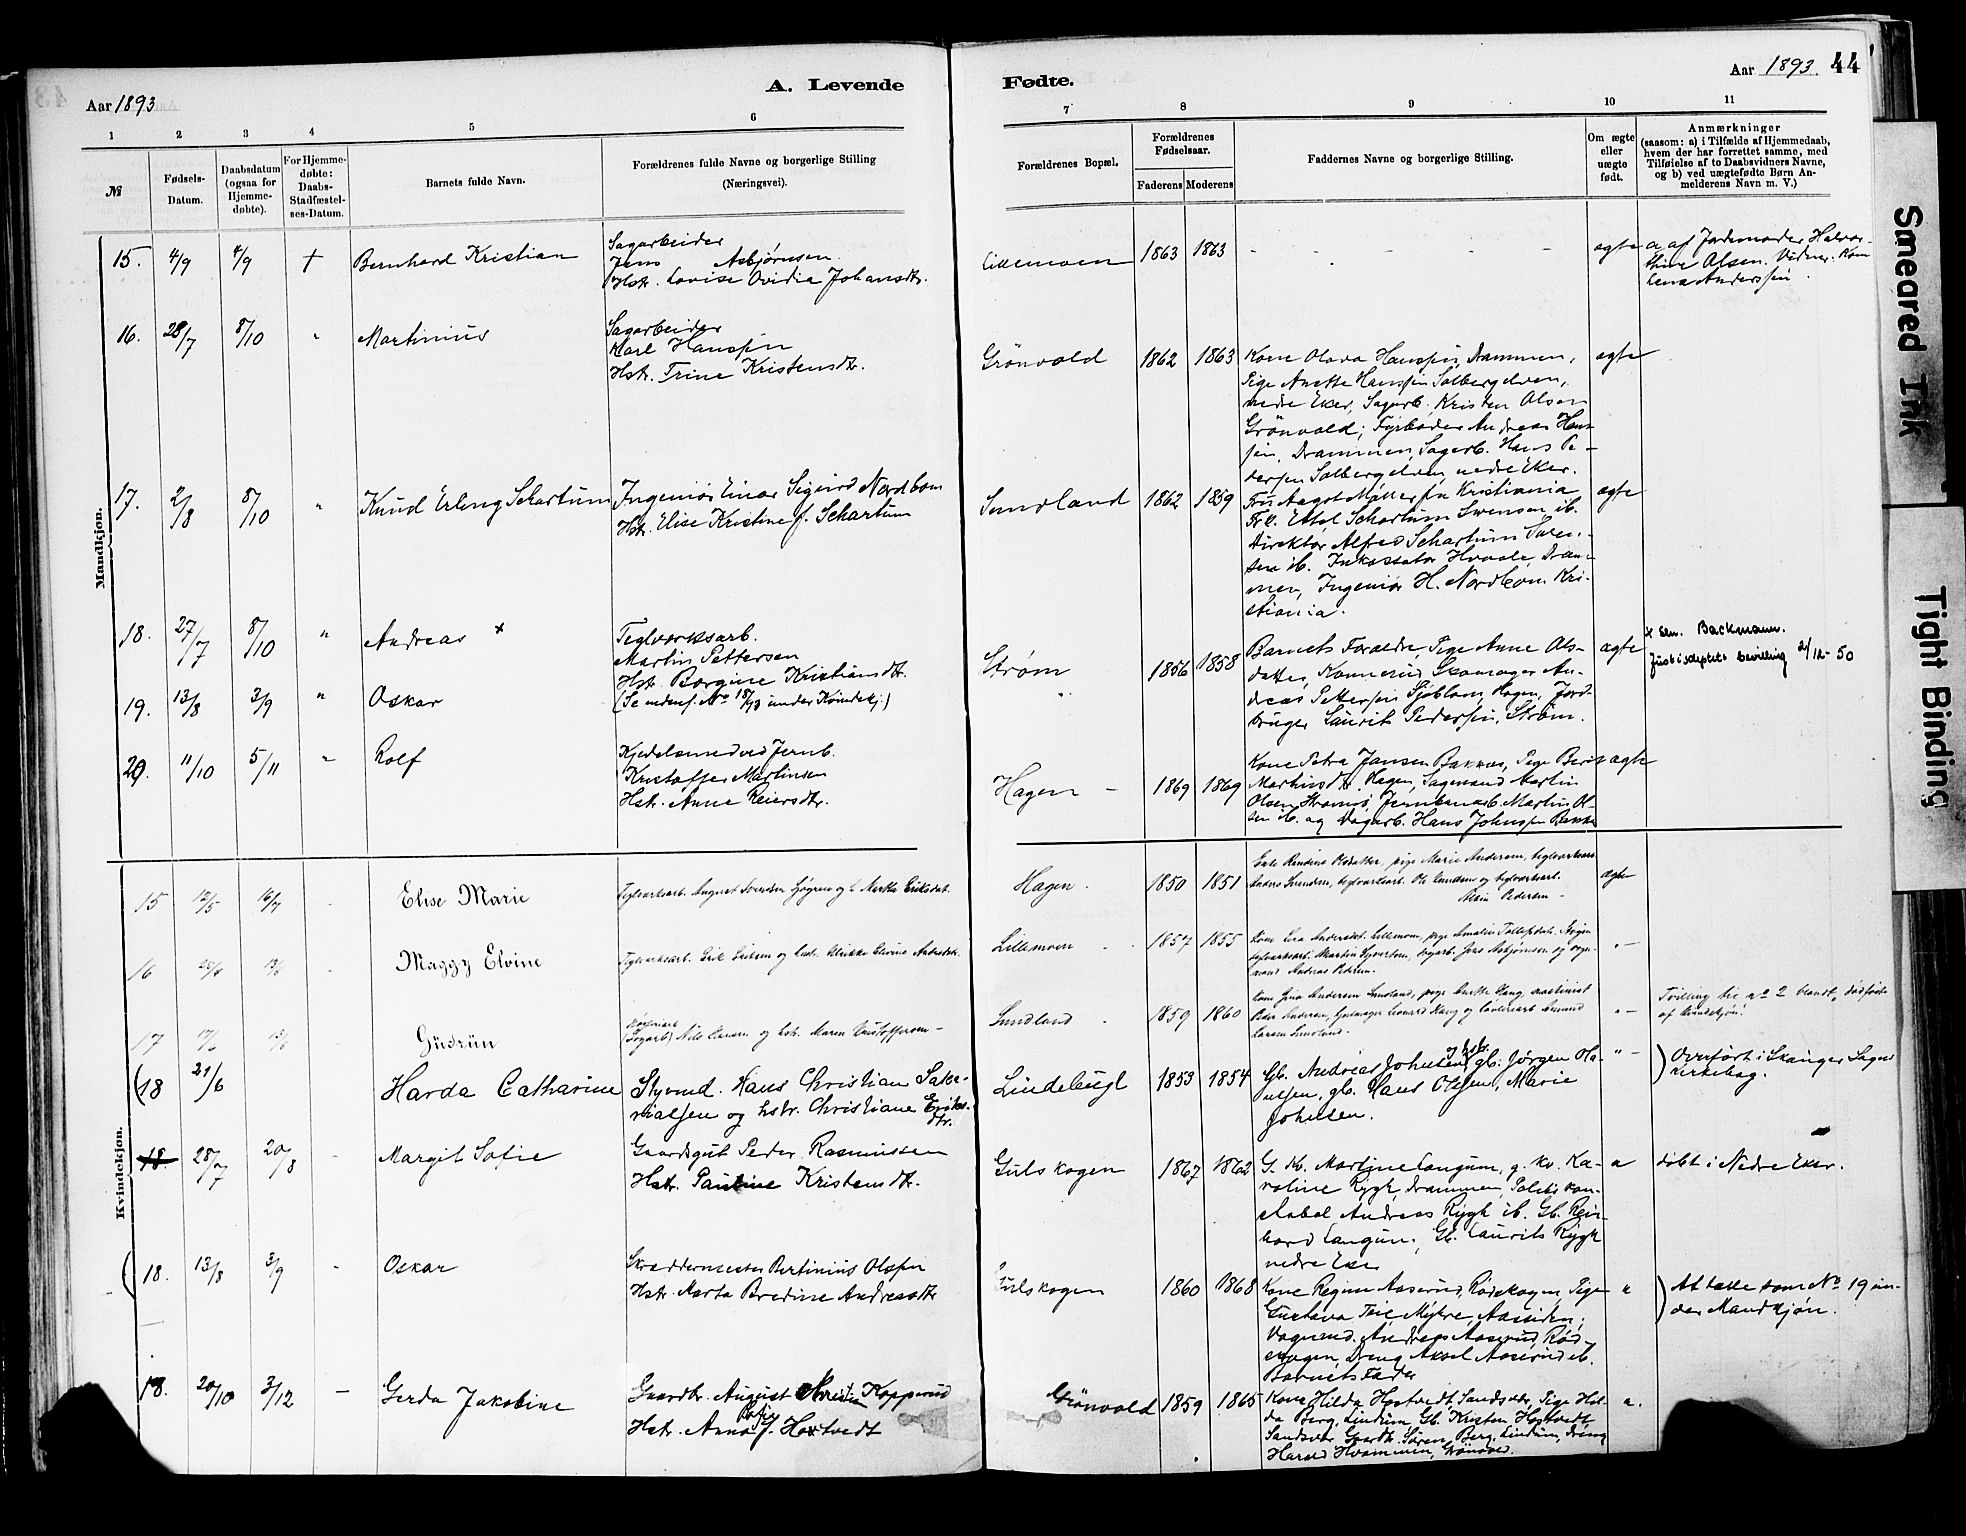 Aar 1893
A. Levende
Fødte.
Aar 1893. 44
1 2 3 4 5 6 7 8 9 10 11
№
Fødsels-
Datum.
Daabsdatum
(ogsaa for
Hjemme-
døbte).
For Hjemme-
døbte:
Daabs-
Stadfæstel-
ses-Datum.
Barnets fulde Navn.
Forældrenes fulde Navne og borgerlige Stilling
(Næringsvei).
Forældrenes Bopæl.
Forældrenes
Fødselsaar.
Faderens Moderens
Faddernes Navne og borgerlige Stilling.
Om ægte
eller
uægte
født.
Anmærkninger
(saasom: a) i Tilfælde af Hjemmedaab,
hvem der har forrettet samme, med
Tilføielse af to Daabsvidners Navne,
og b) ved uægtefødte Børn An-
melderens Navn m. V.)
Mandkjøn.
15. 4/9 4/9 † Bernhard Kristian
Sagarbeider
Jens Asbjørnsen
Hstr. Lovise Ovidia Johansdtr.
Lillemoen 1863 1863 - - - - - ægte
a af Jordemoder Halvor-
thine Olsen. Vidner.
Lena Anderssen.
16. 28/7 8/10 " Martinius
Sagarbeider
Karl Hanssen
Hstr. Trine Kristensdtr.
Grönvold 1862 1863
Kone Olava Hanssen, Drammen,
Pige Anette Hanssen Solbergelven,
nedre Eker, Sagarb. Kristen Olsen
Grönvold; Fyrbøder Andreas Hans-
sen, Drammen, Sagarb. Hans Pe-
dersen Solbergelven, nedre Eker.
ægte
17. 2/8 8/10 " Knud Erling Schartum
Ingeniør Einar Sigurd Nordbom
Hstr. Elise Kristine f. Schartum
Sundland 1862 1859
Fru Aagot Møller fra Kristiania
Frk. Ettol Schartum Svensen ib.
Direktør Alfred Schartum Sven-
sen ib. Inkassator Hvaale, Dram-
men, Ingeniør H. Nordbom Kri-
stiania.
ægte
18. 27/7 8/10 " Andreas x
Teglværksarb.
Martin Pettersen
Hst. Borgine Kristiansdtr.
Strøm 1856 1858
Barnets Forældre, Pige Anne Ols-
datter, Konnerud, Skomager An-
dreas Pettersen Sjöblom, Hagen, Jord-
bruger Laurits Pedersen, Strøm.
ægte
x Em. Backmann.
Justisdeptets bevilling 2/12-50
19. 13/8 3/9 " Oskar
(Se nedenf. No 18/93 under Kvindekj.)
20. 11/10 5/11 " Rolf
Kjedelsmed ved Jernb.
Kristoffer Martinsen
Hstr. Anne Reiersdtr.
Hagen - 1869 1869
Kone Petra Jansen Bakkas, Pige Berit
Martinsdtr. Hagen, Sagmand Martin
Olsen Strømsø, Jernbanearb. Martin Ol-
sen ib. og Dagarb. Hans Johnsen Bakke
ægte
Kvindekjøn.
15 12/5 16/7 - Elise Marie
Teglværksarb. August Svendsen Sjøgren og h. Martha Eriksdat.
Hagen. 1850 1851
Enke Randine Olsdatter, pige Marie Andersen, teglværksarb.
Anders Svendsen, teglværksarb. Ole Amundsen og teglværksarb.
Pedersen -
ægte
16 Maggy Elvine
Teglværksarb. Erik Eriksen og hust. Ulrikke Elvine Andersdat.
Lillemoen 1857 1855
Kone Eva Andersdat. Lillemoen, pige Amalie Tollefsdat.
teglværksarb. Martin Syvertsen, sagarb. Jens Asbjørnsen og
Andreas Pedersen.
" -
17 17/6 Gudrun
(Sagarb) Nils Larsen og hst. Maren Kristoffersen -
Sundland 1859 1860
Kone Gina Andersen Sundland, pige Marthe Haug, maskinist
Peder Andersen, Leonard Haug og Amund
Larsen Sundland.
" -
Tvilling til no 2 blandt dødfødte
af Kvindekjøn.
(18 21/6 Harda Catharine
Styrmd. Hans Christian Sake-
rialsen og hstr. Christiane Eriks-
dtr.
Lindebugt 1853 1854
Gb. Andreas Johnsen og hst., gb. Jørgen Ol-
ulsen, gb. Hans Olsen, Marie
Johnsen.
" -
) Overført i Skånger Sogns
kirkebog.
18. 28/7 20/8 - Margit Sofie
Gaardsgut Peder Rasmussen
Hstr. Pauline Kristensdtr.
Gulskogen 1867 1862
G. K. Martine Langum, g. kv. Ka-
roline Rygh, Drammen, Politikon-
stabel Andreas Rygh ib. Gb. Rein-
hard Langum, Gb. Laurits Rygh
nedre Eker
a
døbt i Nedre Eker.
(18. 13/8 3/9 - Oskar
Skræddermester Bertinius Olsen
Hstr. Marta Bredine Andreasdtr
Gulskogen 1860 1868
Kone Regine Aaserud, Rødskogen, Pige
Gustava Teie Myhre, Aassiden;
Vognmd. Andreas Aaserud, Rød-
skogen, Dreng Aksel Aaserud ib.
Barnets Fader
"
) At tælle som No 19 un-
der Mandkjøn.
18. 20/10 3/12 - Gerda Jakobine
Gaardbr. August Kopperud
Hstr. Anna Sofie f. Hostvedt
Grönvold 1859 1865
Kone Hilda Hostvedt, Sandsvær, Pige Hil-
da Berg, Lindum, Gb. Kristen Hostvedt,
Sandsvær, Gaardbr. Søren Berg, Lindum, Dreng
Harald Hvammen, Grönvold.
a.
Smeared Ink
Tight Binding